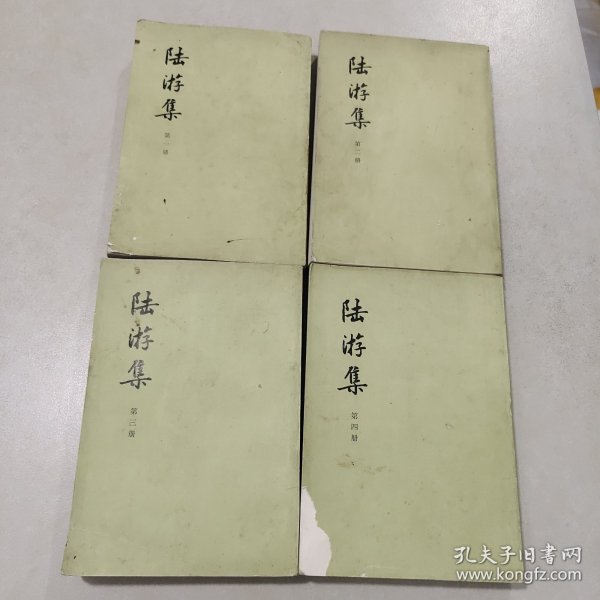 陆游集
第一册
陆游集
第二册
陆游集
第三册
陆游集
第四册
孔夫子旧书网
www.kongfz.com